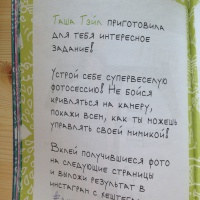 Гаша Гэйл приготовила
для тебя интересное
задание!
Устрой себе супервеселую
фотосессию! Не бойся
кривляться на камеру,
покажи всем, как ты можешь
управлять своей мимикой!
Вклей получившиеся фото
на следующие страницы
и выложи результат в
инстаграм с хештегом